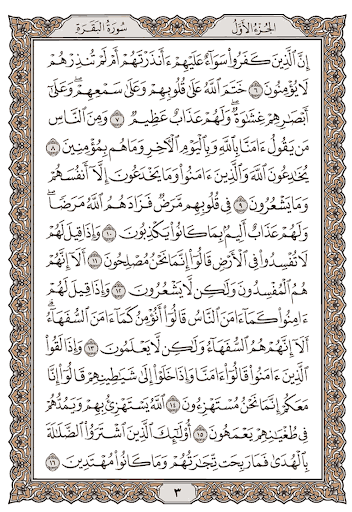 سُورَةُ البَقَرَةِ الجُزءُ الأَوَّلُ
إِنَّ الَّذِينَ كَفَرُوا۟ سَوَآءٌ عَلَيْهِمْ ءَأَنذَرْتَهُمْ أَمْ لَمْ تُنذِرْهُمْ
لَا يُؤْمِنُونَ ٦ خَتَمَ اللَّهُ عَلَىٰ قُلُوبِهِمْ وَعَلَىٰ سَمْعِهِمْ ۖ وَعَلَىٰٓ
أَبْصَٰرِهِمْ غِشَٰوَةٌ ۖ وَلَهُمْ عَذَابٌ عَظِيمٌ ٧ وَمِنَ النَّاسِ
مَن يَقُولُ ءَامَنَّا بِاللَّهِ وَبِالْيَوْمِ الْءَاخِرِ وَمَا هُم بِمُؤْمِنِينَ ٨
يُخَٰدِعُونَ اللَّهَ وَالَّذِينَ ءَامَنُوا۟ وَمَا يَخْدَعُونَ إِلَّآ أَنفُسَهُمْ
وَمَا يَشْعُرُونَ ٩ فِى قُلُوبِهِم مَّرَضٌ فَزَادَهُمُ اللَّهُ مَرَضًا ۖ
وَلَهُمْ عَذَابٌ أَلِيمٌۢ بِمَا كَانُوا۟ يَكْذِبُونَ ١٠ وَإِذَا قِيلَ لَهُمْ
لَا تُفْسِدُوا۟ فِى الْأَرْضِ قَالُوٓا۟ إِنَّمَا نَحْنُ مُصْلِحُونَ ١١ أَلَآ إِنَّهُمْ
هُمُ الْمُفْسِدُونَ وَلَٰكِن لَّا يَشْعُرُونَ ١٢ وَإِذَا قِيلَ لَهُمْ
ءَامِنُوا۟ كَمَآ ءَامَنَ النَّاسُ قَالُوٓا۟ أَنُؤْمِنُ كَمَآ ءَامَنَ السُّفَهَآءُ ۗ
أَلَآ إِنَّهُمْ هُمُ السُّفَهَآءُ وَلَٰكِن لَّا يَعْلَمُونَ ١٣ وَإِذَا لَقُوا۟
الَّذِينَ ءَامَنُوا۟ قَالُوٓا۟ ءَامَنَّا وَإِذَا خَلَوْا۟ إِلَىٰ شَيَٰطِينِهِمْ قَالُوٓا۟ إِنَّا
مَعَكُمْ إِنَّمَا نَحْنُ مُسْتَهْزِءُونَ ١٤ اللَّهُ يَسْتَهْزِئُ بِهِمْ وَيَمُدُّهُمْ
فِى طُغْيَٰنِهِمْ يَعْمَهُونَ ١٥ أُو۟لَٰٓئِكَ الَّذِينَ اشْتَرَوُا۟ الضَّلَٰلَةَ
بِالْهُدَىٰ فَمَا رَبِحَت تِّجَٰرَتُهُمْ وَمَا كَانُوا۟ مُهْتَدِينَ ١٦
٣